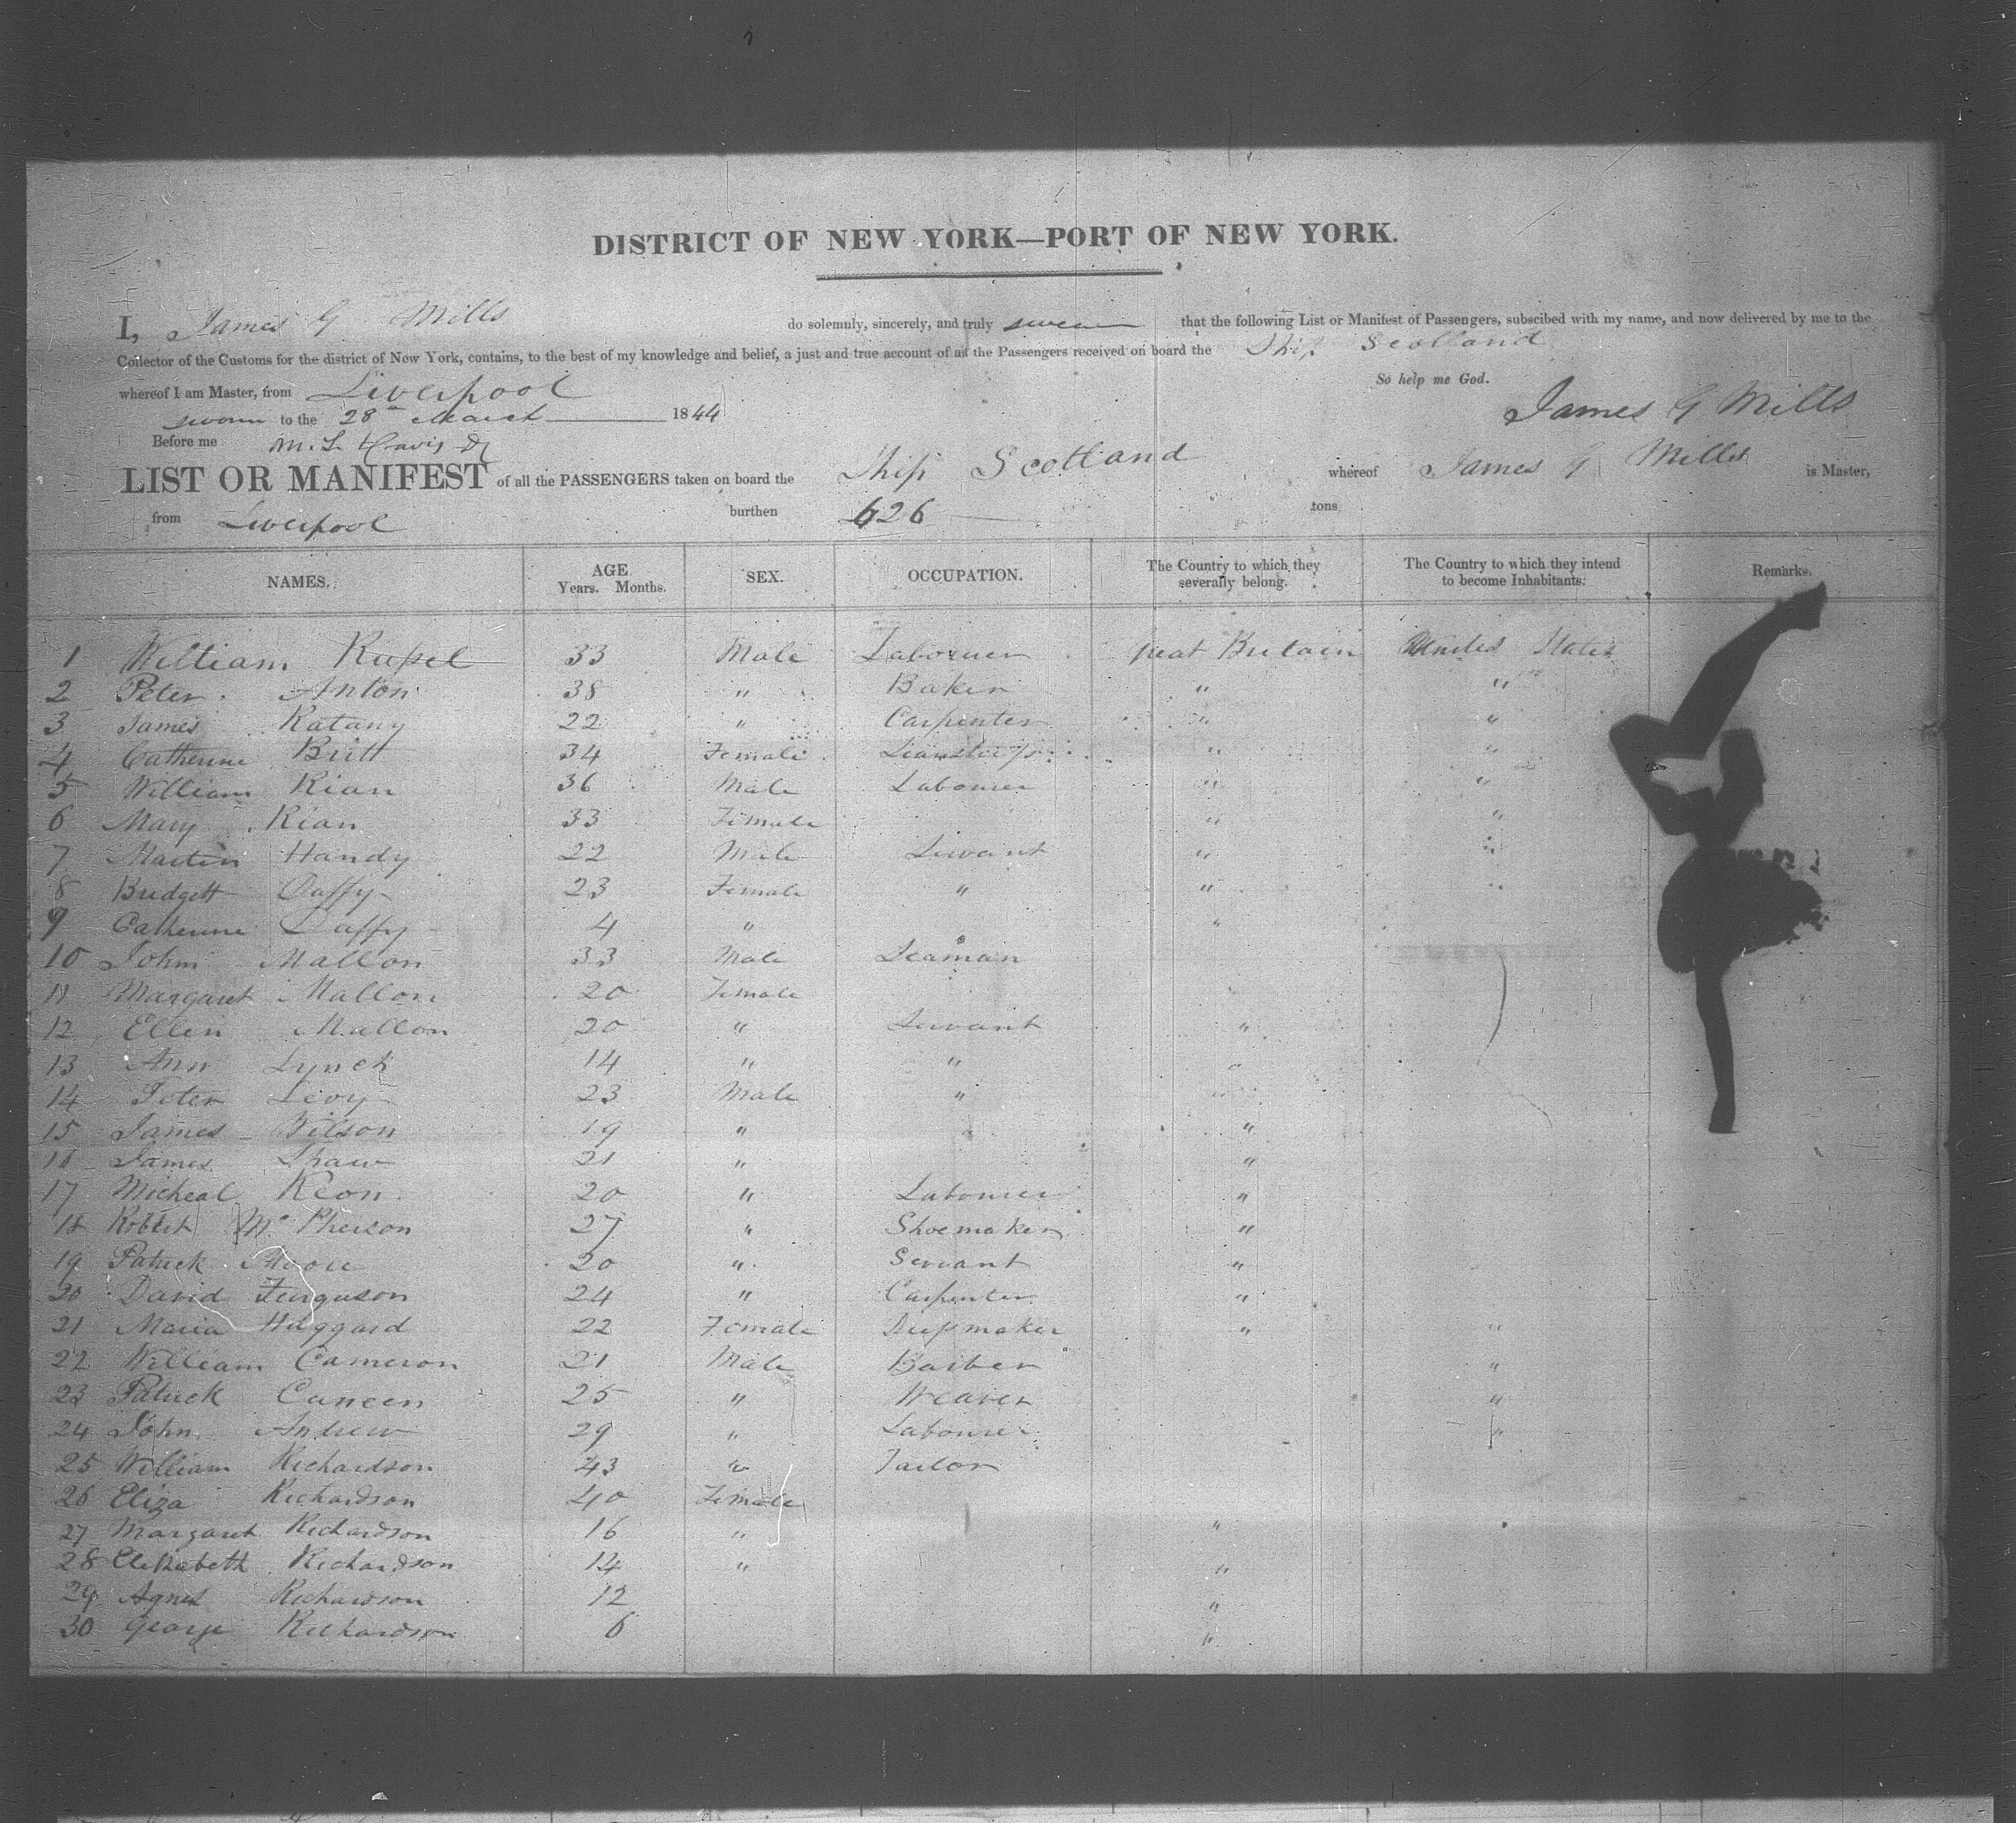 DISTRICT OF NEW YORK—PORT OF NEW YORK.
I, James G Mills do solemnly, sincerely, and truly swear that the following List or Manifest of Passengers, subscibed with my name, and now delivered by me to the
Collector of the Customs for the district of New York, contains, to the best of my knowledge and belief, a just and true account of all the Passengers received on board the Ship Scotland
whereof I am Master, from Liverpool So help me God.
sworn to the 28th March 1844 James G Mills
Before me M. L. Davis
LIST OR MANIFEST of all the PASSENGERS taken on board the Ship Scotland whereof James G Mills is Master,
from Liverpool burthen 626 tons
NAMES. AGE Years. Months. SEX. OCCUPATION. The Country to which they severally belong. The Country to which they intend to become Inhabitants. Remarks.
1 William Rupel 33 Male Labourer Great Britain United States
2 Peter Anton 38 " Baker " "
3 James Katany 22 " Carpenter " "
4 Catherine Britt 34 Female " "
5 William Rian 36 Male Labourer " "
6 Mary Rian 33 Female " "
7 Martin Handy 22 Male Servant " "
8 Bridgett Daffy 23 Female " " "
9 Catherine Daffy 4 " "
10 John Mallon 33 Male Seaman
11 Margaret Mallon 20 Female
12 Ellen Mallon 20 " Servant "
13 Ann Lynch 14 " " "
14 Peter Levy 23 Male " "
15 James Wilson 19 " "
16 James Shaw 21 " "
17 Micheal Keon 20 " Labourer "
18 Robert McPherson 27 " Shoemaker "
19 Patrick Moore 20 " Servant "
20 David Ferguson 24 " Carpenter "
21 Maria Haggard 22 Female Dressmaker " "
22 William Cameron 21 Male Barber "
23 Patrick Cancen 25 " Weaver "
24 John Andrew 29 " Labourer "
25 William Richardson 43 " Tailor
26 Eliza Richardson 40 Female
27 Margaret Richardson 16 " "
28 Elizabeth Richardson 14 " "
29 Agnes Richardson 12 "
30 George Richardson 6 "